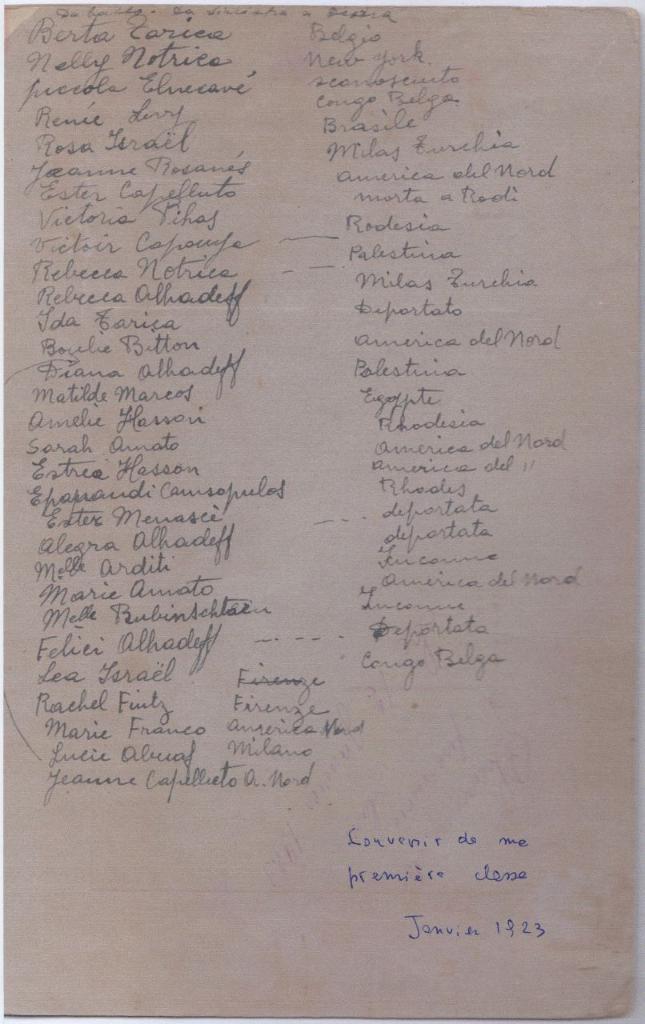 da sinistra a destra
Berta Tarica Belgio
Nelly Notrica New York
piccola Elnecavé sconosciuto
Renée Levy Congo Belga
Rosa Israël Brasile
Jeanne Rosanés Milas Turchia
Ester Capelluto America del Nord
Victoria Pihas morta a Rodi
Victoir Capouya — Rodesia
Rebecca Notrica -- Palestina
Rebecca Alhadeff Milas Turchia
Ida Tarica Deportato
Boulie Bitton America del Nord
Diana Alhadeff Palestina
Matilde Marcos Egypte
Amelie Hasson Rhodesia
Sarah Amato America del Nord
Estrea Hasson America del "
Camsopulos Rhodes
Ester Menascè --- deportata
Alegra Alhadeff deportata
Melle Arditi Inconnue
Marie Amato America del Nord
Melle Rubinschtaen Inconnue
Felici Alhadeff ---- Deportata
Lea Israël Firenze Congo Belga
Rachel Fintz Firenze
Marie Franco America Nord
Lucie Abuaf Milano
Jeanne Capelluto A. Nord
Souvenir de ma
première classe
Janvier 1923